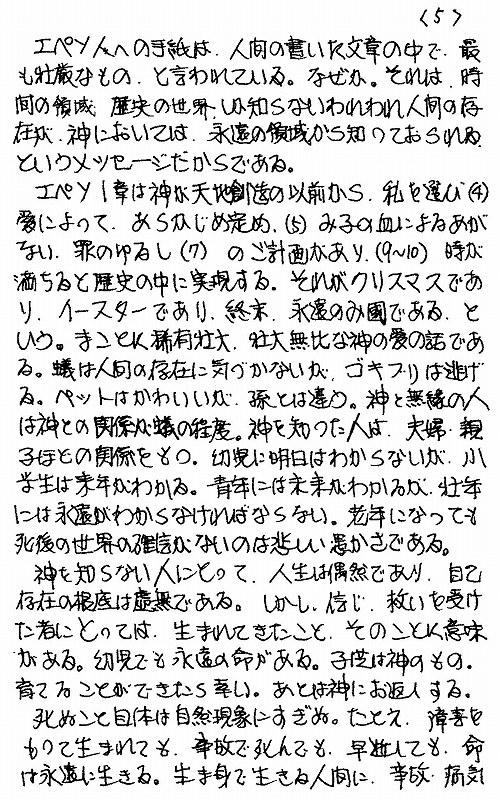 (5)
エペソ人への手紙は、人間の書いた文章の中で、最
も壮厳なもの、と言われている。なぜか。それは、時
間の領域、歴史の世界しか知らないわれわれ人間の存
在が、神においては、永遠の領域から知っておられる
というメッセージだからである。
エペソ1章は神が天地創造の以前から、私を選び(4)
愛によって、あらかじめ定め、(5)み子の血によるあが
ない、罪のゆるし(7)のご計画があり、(9~10)時が
満ちると歴史の中に実現する。それがクリスマスであ
り、イースターであり、終末、永遠のみ国である、と
いう。まことに稀有壮大、壮大無比な神の愛の話であ
る。蟻は人間の存在に気づかないが、ゴキブリは逃げ
る。ペットはかわいいが、孫とは違う。神と無縁の人
は神との関係が蟻の程度。神を知った人は、夫婦・親
子ほどの関係をもつ。幼児に明日はわからないが、小
学生は来年がわかる。青年には未来がわかるが、壮年
には永遠がわからなければならない。老年になっても
死後の世界の確信がないのは悲しい愚かさである。
神を知らない人にとって、人生は偶然であり、自己
存在の根底は虚無である。しかし、信じ、救いを受け
た者にとっては、生まれてきたこと、そのことに意味
がある。幼児でも永遠の命がある。子供は神のもの。
育てることができたら幸い。あとは神にお返しする。
死ぬこと自体は自然現象にすぎぬ。たとえ、障害を
もって生まれても、事故で死んでも、早逝しても、命
は永遠に生きる。生き身で生きる人間に、事故・病気